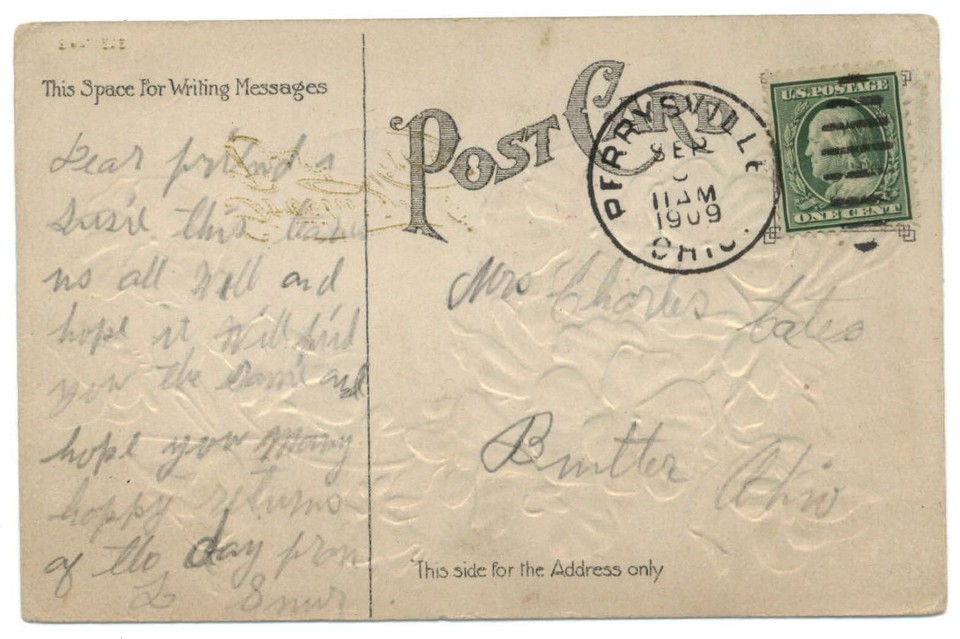 This Space For Writing Messages
POST CARD
PERRYSVILLE
SEP
11 AM
1909
OHIO.
U.S. POSTAGE
ONE CENT
Dear friend
this leaves
us all Well and
hope it Will find
you the same and
hope you Many
happy returns
of the day from
Mrs Charles Cates
Buttler Ohio
This side for the Address only